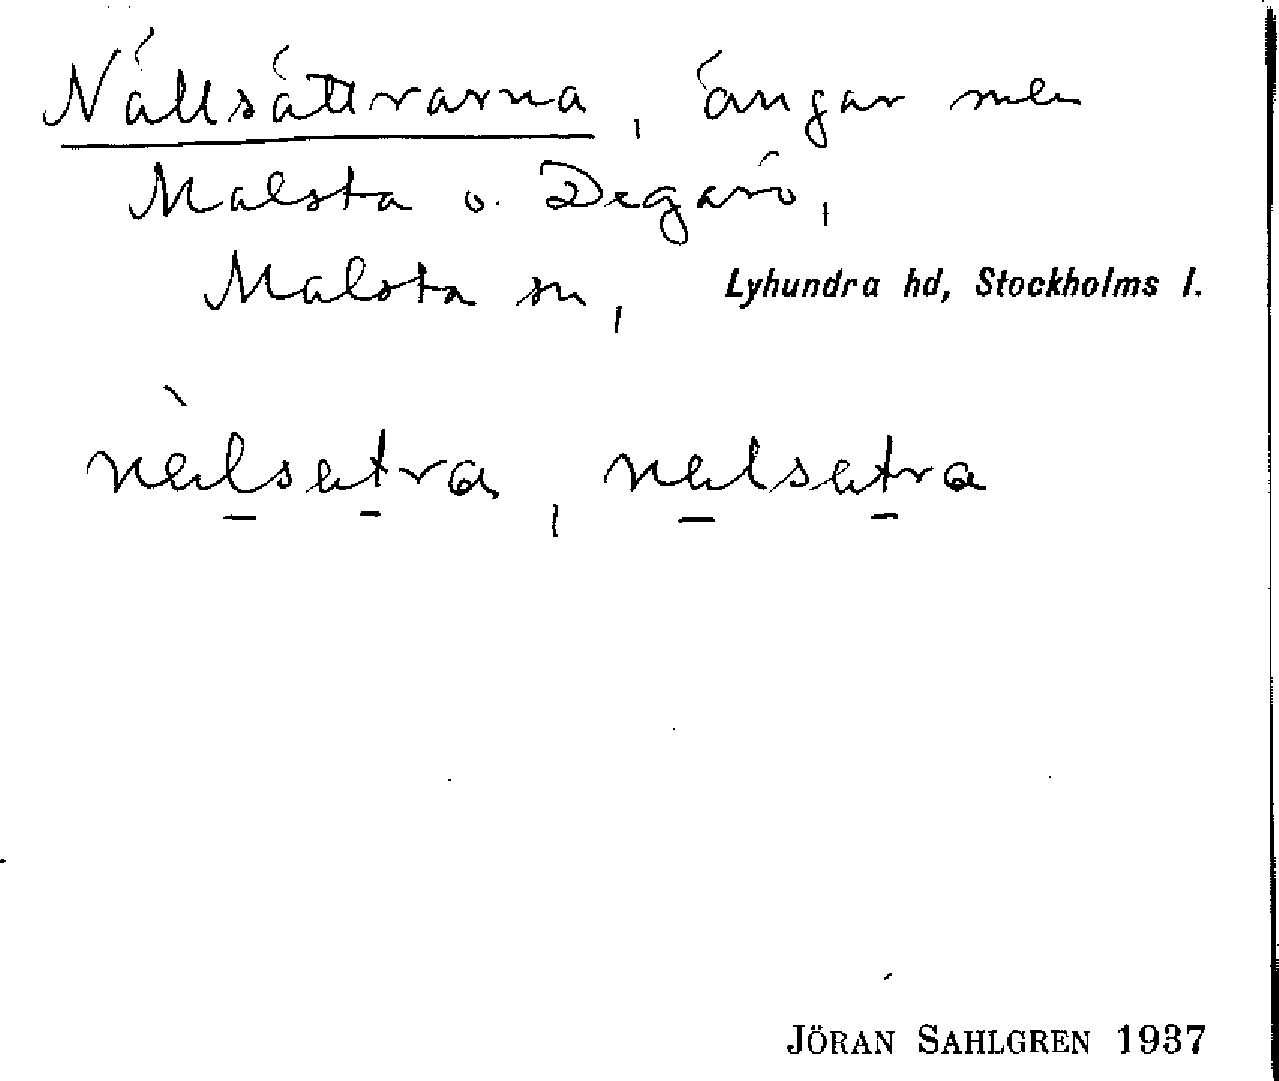 Nällsättrarna, ängar mln
Malsta o. Degarö,
Malsta sn, Lyhundra hd, Stockholms l.
nälsätra, nälsätra
JÖRAN SAHLGREN 1937